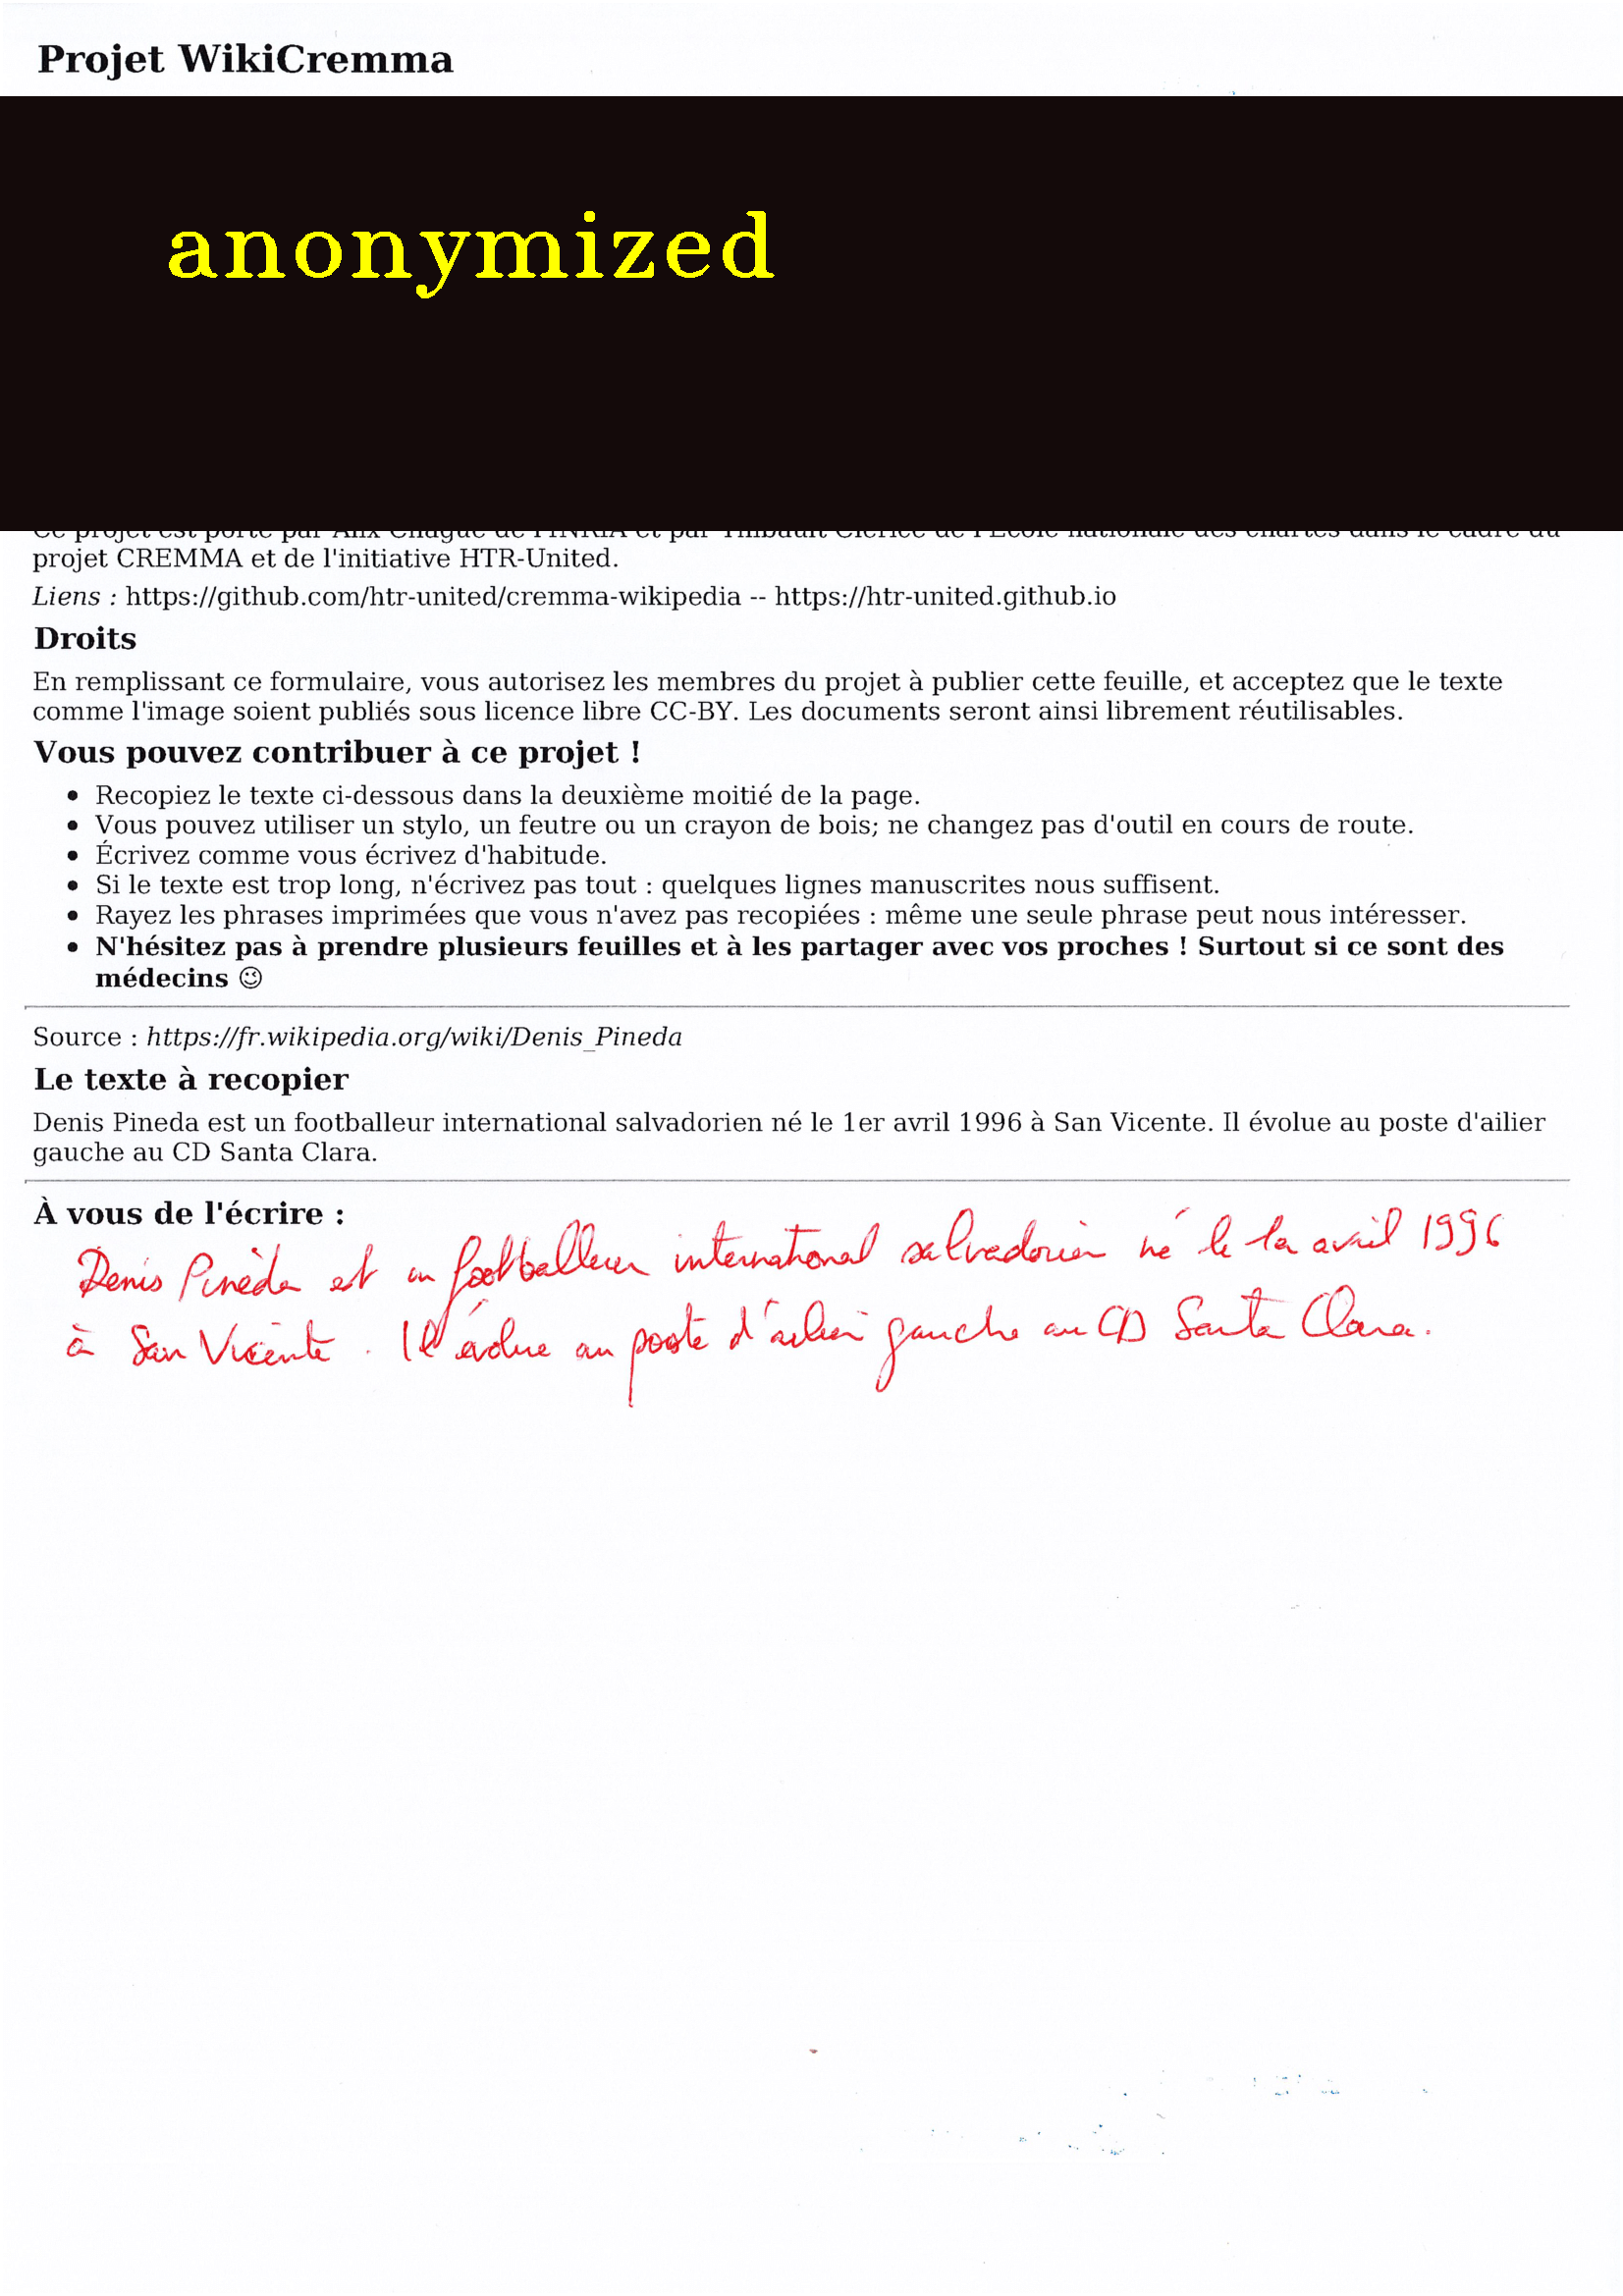 Projet WikiCremma
anonymized
Ce projet est porté par Alix Chagué de l'INRIA et par Thibault Clérice de l'École nationale des chartes dans le cadre du
projet CREMMA et de l'initiative HTR-United.
Liens : https://github.com/htr-united/cremma-wikipedia -- https://htr-united.github.io
Droits
En remplissant ce formulaire, vous autorisez les membres du projet à publier cette feuille, et acceptez que le texte
comme l'image soient publiés sous licence libre CC-BY. Les documents seront ainsi librement réutilisables.
Vous pouvez contribuer à ce projet !
• Recopiez le texte ci-dessous dans la deuxième moitié de la page.
• Vous pouvez utiliser un stylo, un feutre ou un crayon de bois; ne changez pas d'outil en cours de route.
• Écrivez comme vous écrivez d'habitude.
• Si le texte est trop long, n'écrivez pas tout : quelques lignes manuscrites nous suffisent.
• Rayez les phrases imprimées que vous n'avez pas recopiées : même une seule phrase peut nous intéresser.
• N'hésitez pas à prendre plusieurs feuilles et à les partager avec vos proches ! Surtout si ce sont des
médecins 😉
Source : https://fr.wikipedia.org/wiki/Denis_Pineda
Le texte à recopier
Denis Pineda est un footballeur international salvadorien né le 1er avril 1996 à San Vicente. Il évolue au poste d'ailier
gauche au CD Santa Clara.
À vous de l'écrire :
Denis Pinèda est un footballeur international salvadorien né le 1er avril 1996
à San Vicente. Il évolue au poste d'ailier gauche au CD Santa Clara.